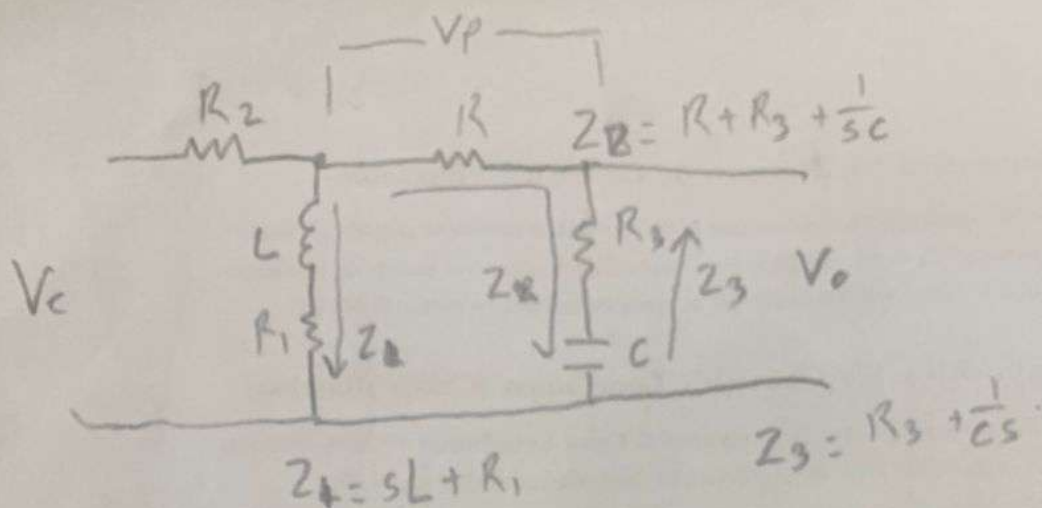 VP
R2
R
ZB = R + R3 + 1/sC
L
R3
Vc
Z3
Vo
R1
C
= sL + R1
Z3 = R3 + 1/cs